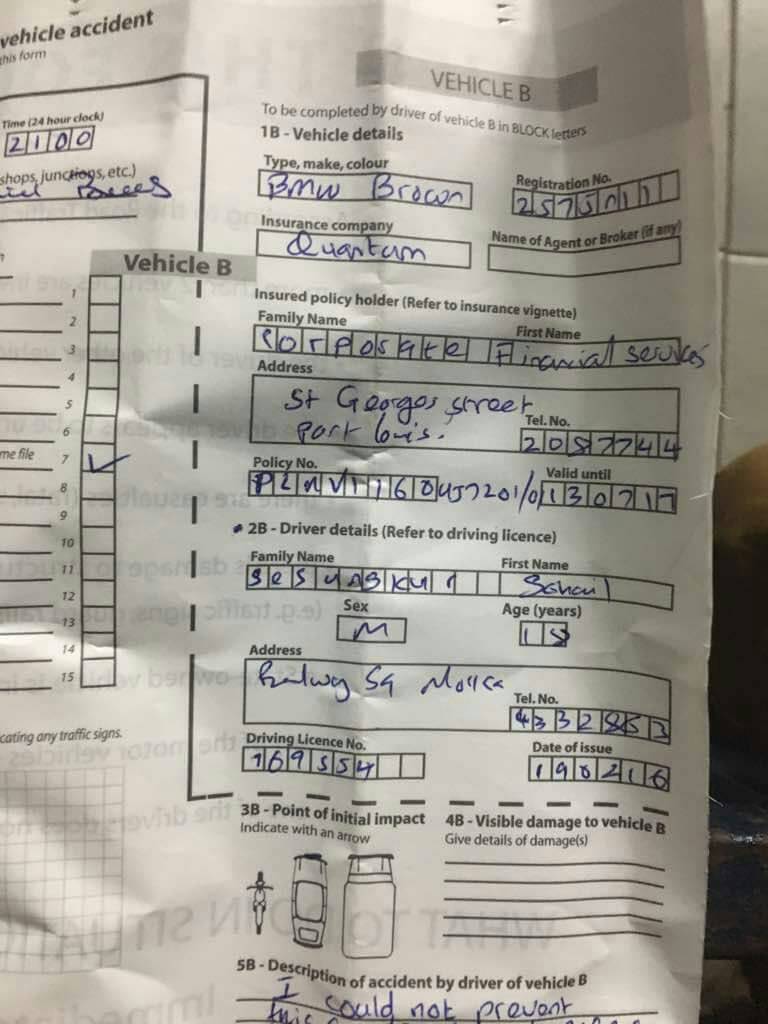 vehicle accident
this form
VEHICLE B
To be completed by driver of vehicle B in BLOCK letters
Time (24 hour clock)
2100
shops, junctions, etc.)
1B - Vehicle details
Type, make, colour
BMW Brown
Registration No.
Insurance company
Quantum
Name of Agent or Broker (if any)
Vehicle B
Insured policy holder (Refer to insurance vignette)
Family Name First Name
Corporate Financial services
Address
St Georges street
Port Louis.
Tel. No.
2087744
Policy No. Valid until
130717
1
2
3
4
5
6
me file 7 ✓
8
9
10
11
12
13
14
15
2B - Driver details (Refer to driving licence)
Family Name First Name
Sex Age (years)
M 18
Address
Tel. No.
Driving Licence No. Date of issue
190216
cating any traffic signs.
3B - Point of initial impact
Indicate with an arrow
4B - Visible damage to vehicle B
Give details of damage(s)
5B - Description of accident by driver of vehicle B
I could not prevent
this